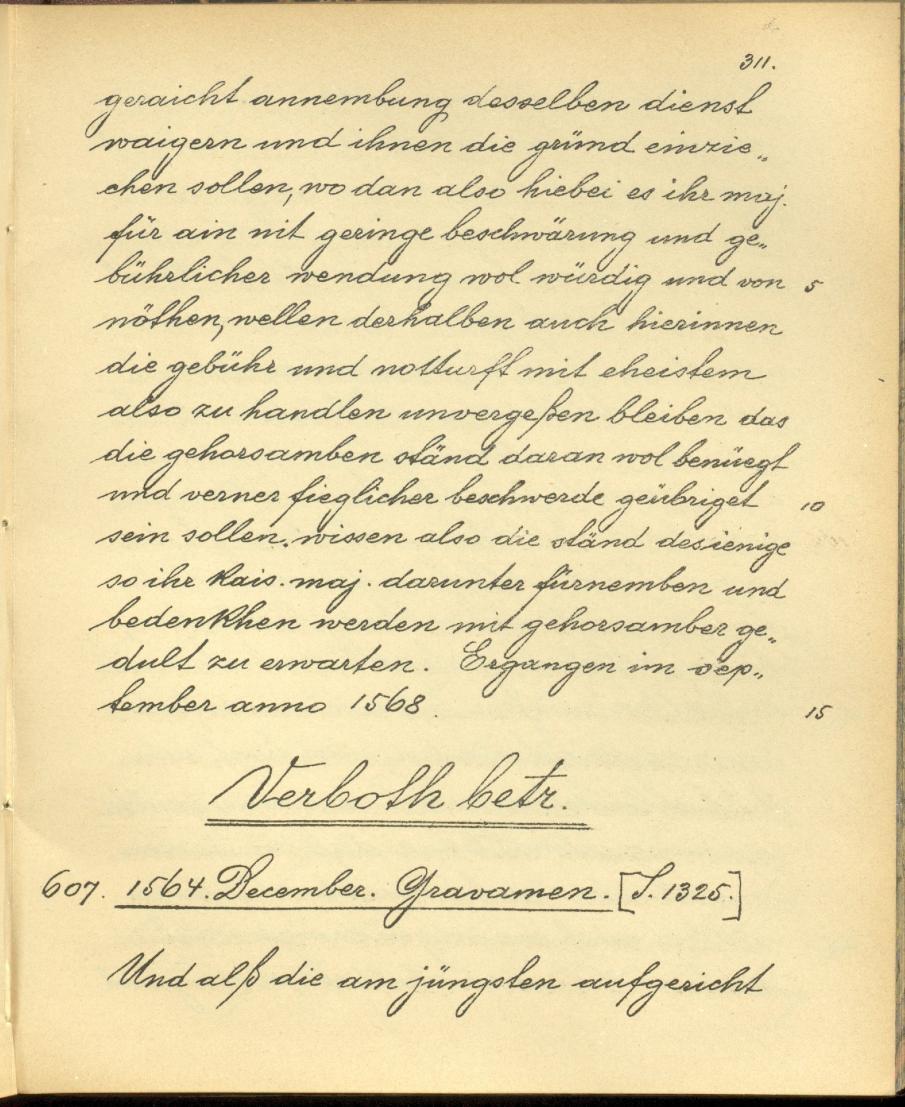 311.
geraicht annembung desselben dienst
waigern und ihnen die gründ einzie„
chen sollen, wo dan also hiebei es ihr maj.
für ain nit geringe beschwärung und ge„
bührlicher wendung wol würdig und von 5
nöthen, wellen derhalben auch hierinnen
die gebühr und notturft mit eheistem
also zu handlen unvergeßen bleiben das
die gehorsamben ständ daran wol benüegt
und verner fieglicher beschwerde geübriget 10
sein sollen. wissen also die ständ desienige
so ihr kais. maj. darunter fürnemben und
bedenkhen werden mit gehorsamber ge„
dult zu erwarten. Ergangen im sep„
tember anno 1568 15
Verboth betr.
607. 1564. December. Gravamen. [S. 1325.]
Und alß die am jüngsten aufgericht